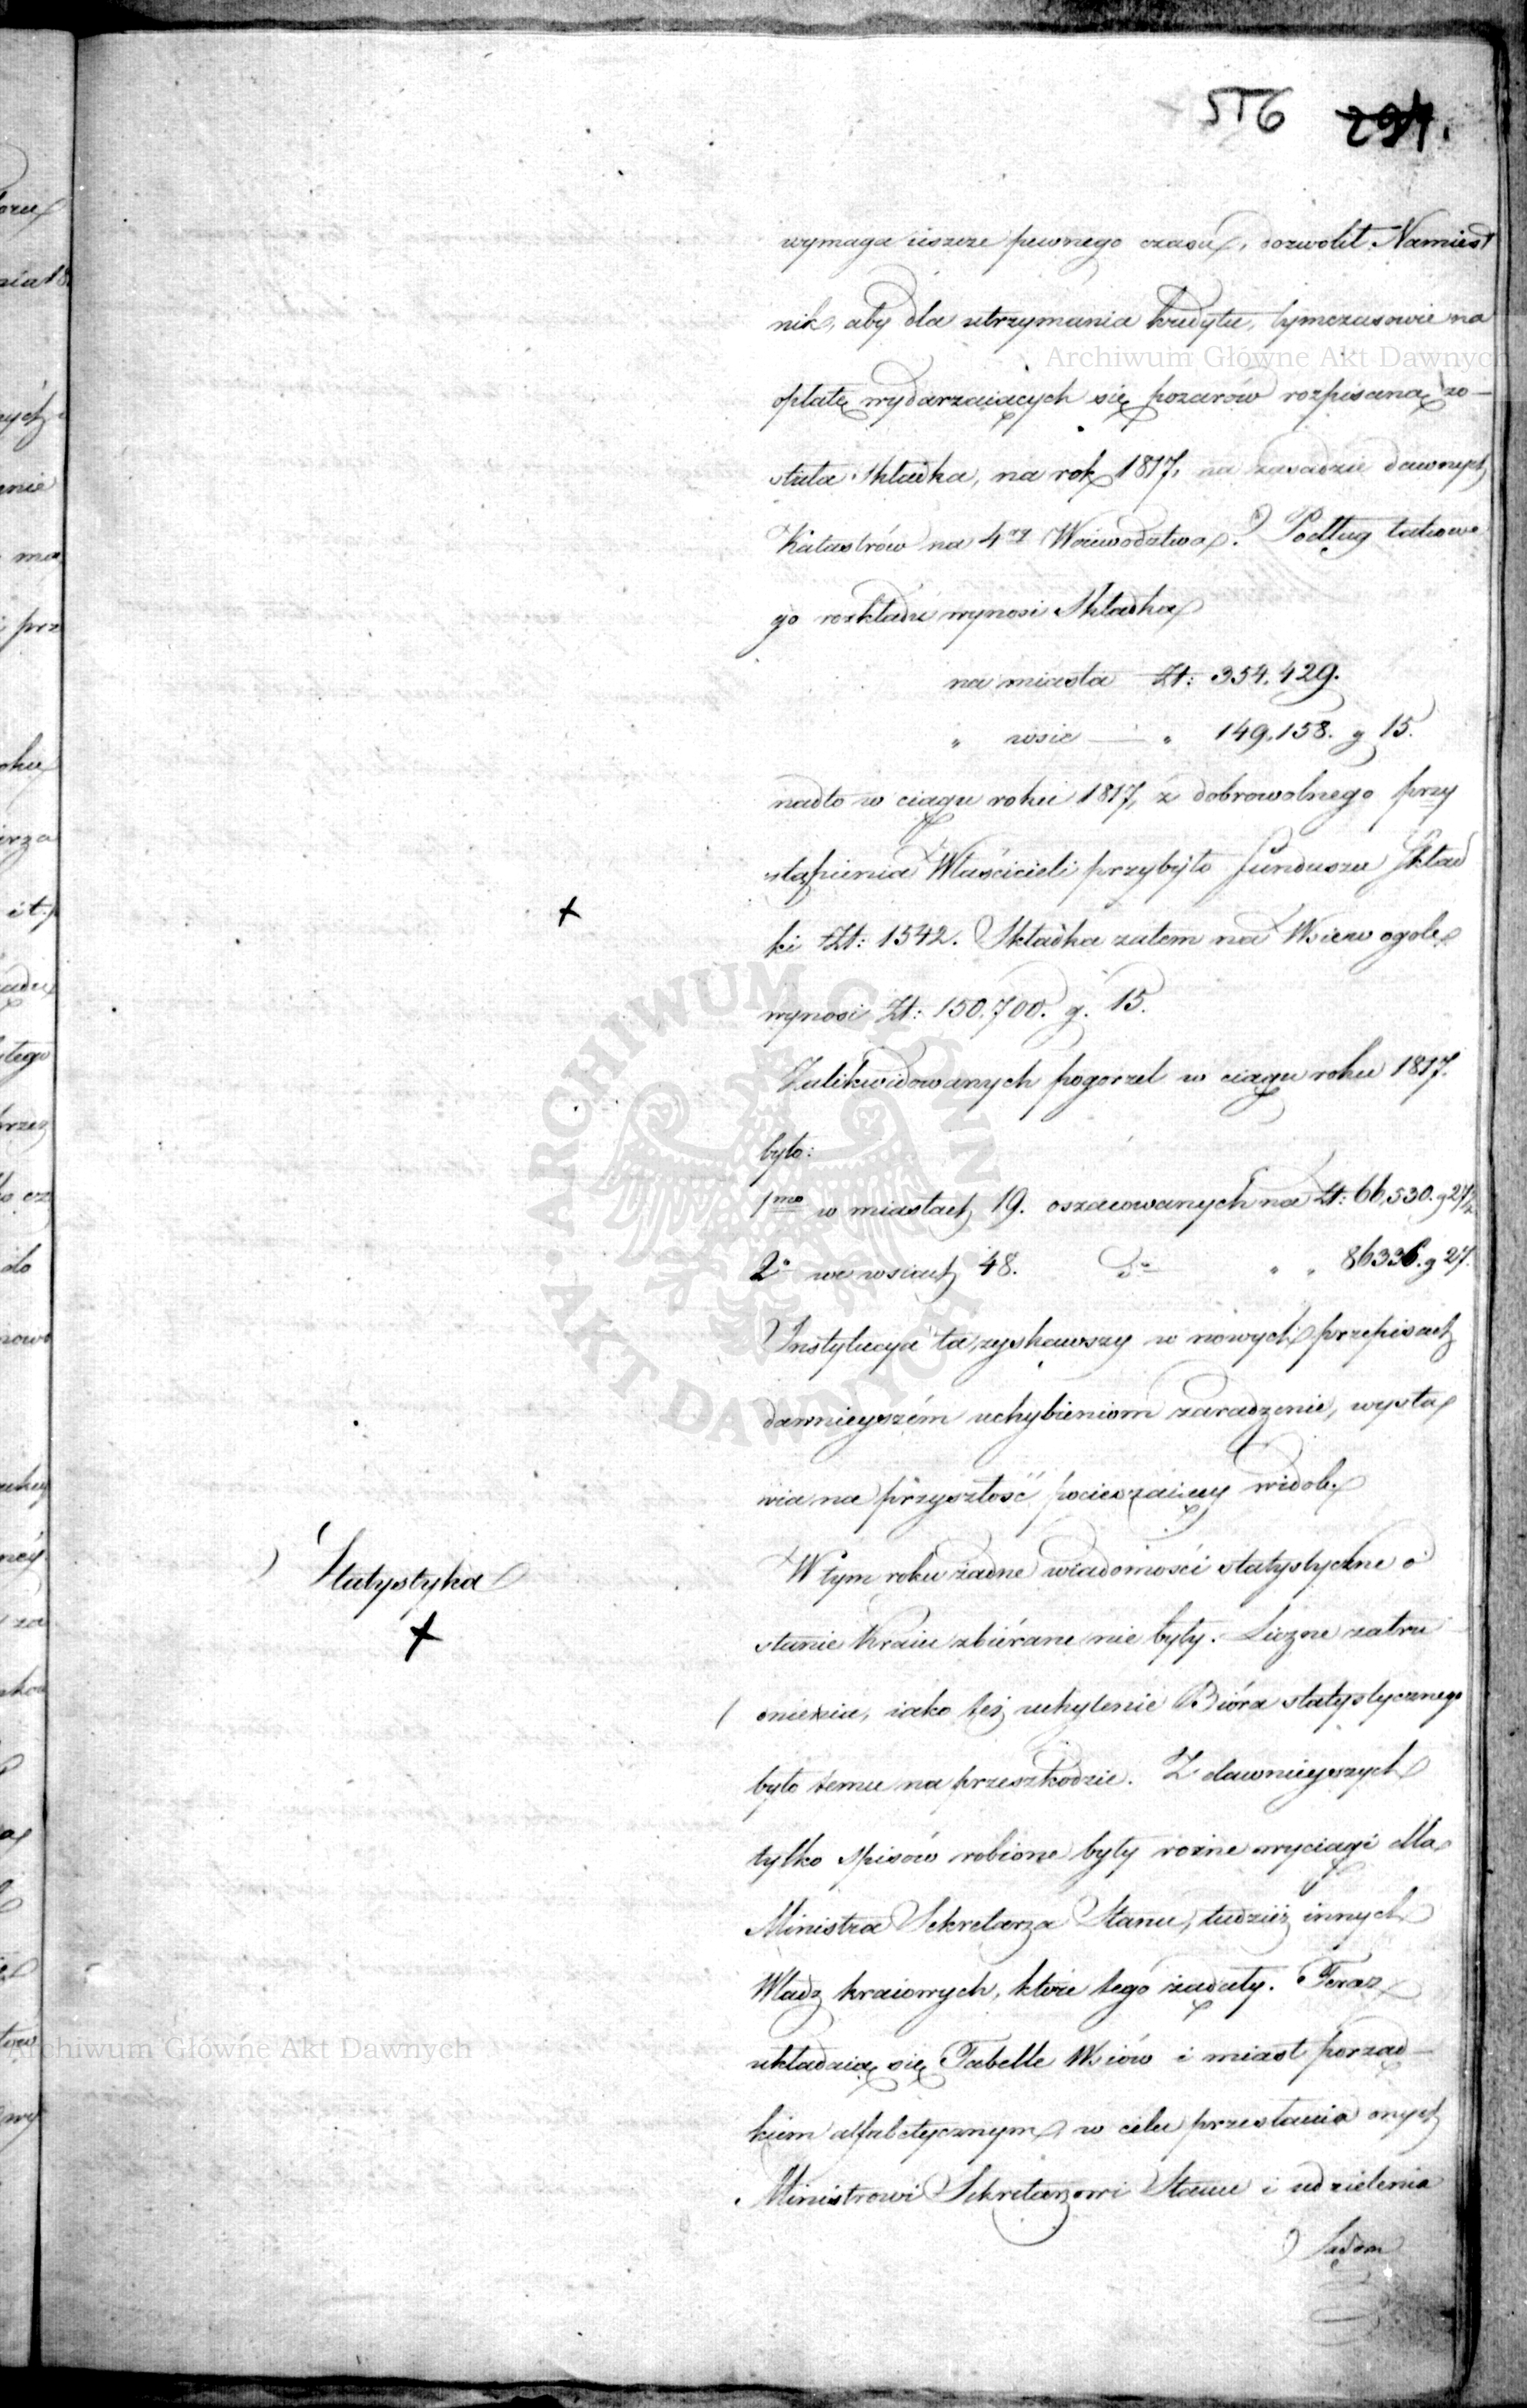 556 294.
wymaga ieszcze pewnego czasu, dozwolił Namiest
nik, aby dla utrzymania kredytu, tymczasowie na
opłatę wydarzaiących się pozarów rozpisaną zo-
stała Składka, na rok 1817, na zasadzie dawnych
Katastrów na 4ry Woiewodztwa. Podług takowe
go rozkładu wynosi Składka
na miasta Zł: 354.429.
" wsie — " 149.158. g 15.
nadto w ciągu roku 1817, z dobrowolnego przy
stąpienia Właścicieli przybyło funduszu Skład
ki Zł: 1542. Składka zatem na Wsie w ogole
wynosi Zł: 150.700. g. 15.
Zalikwidowanych pogorzel w ciągu roku 1817.
było:
1mo w miastach 19. oszacowanych na Zł: 66,530. g 27½
2o we wsiach 48. Do " " 86336. g 27.
Instytucya ta, zyskawszy w nowych przepisach
dawnieyszém uchybieniom zaradzenie, wysta
wia na przyszłość pocieszaiący widok.
Statystyka
W tym roku żadne wiadomości statystyczne o
stanie Kraiu zbiérane nie były. Liczne zatru
dnienia, iako też uchylenie Bióra statystycznego
było temu na przeszkodzie. Z dawnieyszych
tylko spisów robione były rożne wyciągi dla
Ministra Sekretarza Stanu, tudzież innych
Władz kraiowych, które tego żądały. Teraz
układaią się Tabelle Wsiów i miast porząd-
kiem alfabetycznym, w celu przesłania onych
Ministrowi Sekretarzowi Stanu i udzielenia
Sądom
Archiwum Główne Akt Dawnych
ARCHIWUM GŁÓWNE AKT DAWNYCH
Archiwum Główne Akt Dawnych